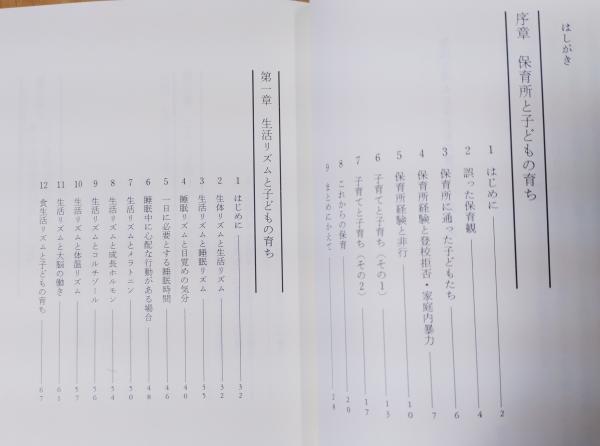 はしがき
序章 保育所と子どもの育ち
1 はじめに 2
2 誤った保育観 4
3 保育所に通った子どもたち 6
4 保育所経験と登校拒否・家庭内暴力 7
5 保育所経験と非行 10
6 子育てと子育ち（その1） 13
7 子育てと子育ち（その2） 17
8 これからの保育 20
9 まとめにかえて 28
第一章 生活リズムと子どもの育ち
1 はじめに 32
2 生体リズムと生活リズム 32
3 生活リズムと睡眠リズム 35
4 睡眠リズムと目覚めの気分 40
5 一日に必要とする睡眠時間 46
6 睡眠中に心配な行動がある場合 48
7 生活リズムとメラトニン 50
8 生活リズムと成長ホルモン 54
9 生活リズムとコルチゾール 56
10 生活リズムと体温リズム 57
11 生活リズムと大脳の働き 61
12 食生活リズムと子どもの育ち 67